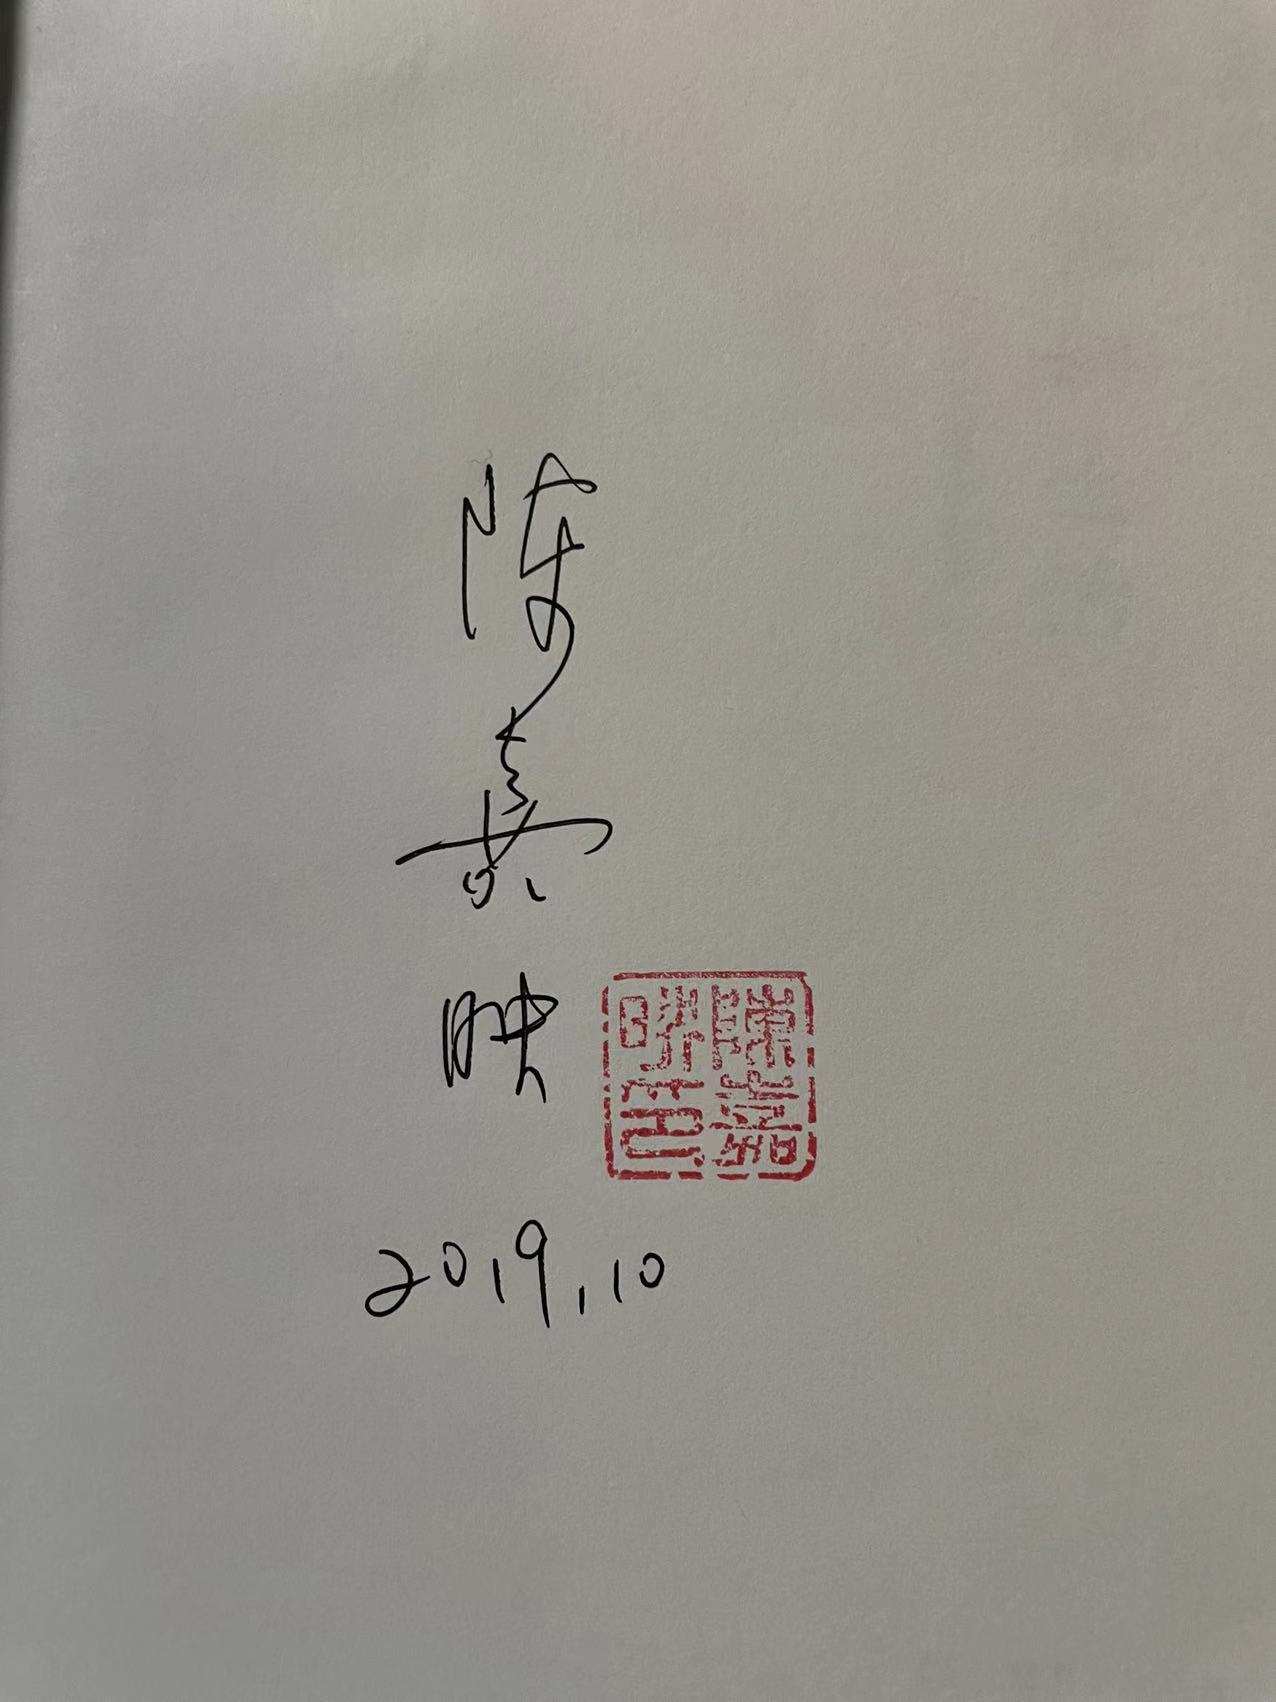 陈嘉映
2019.10
陳嘉映印